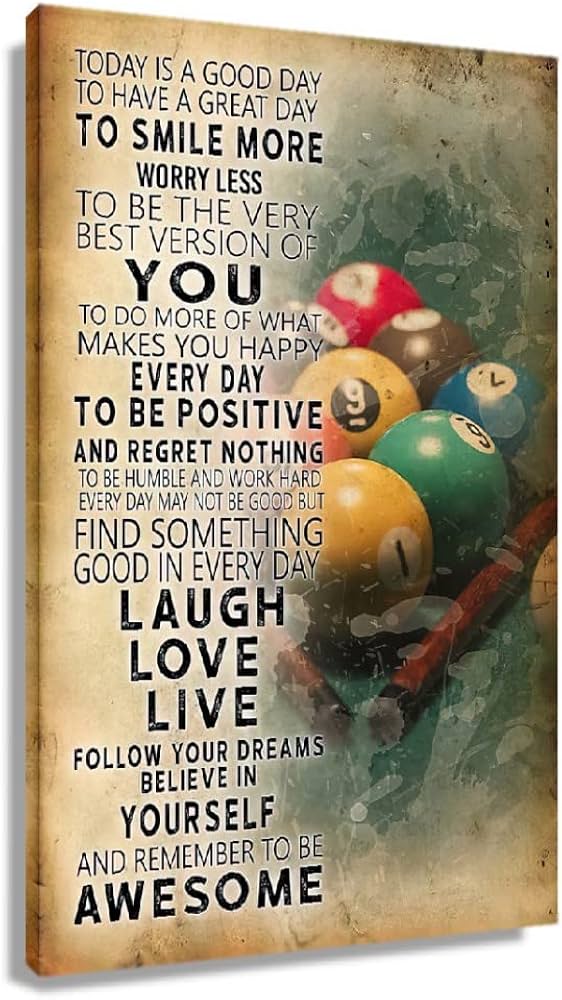 TODAY IS A GOOD DAY
TO HAVE A GREAT DAY
TO SMILE MORE
WORRY LESS
TO BE THE VERY
BEST VERSION OF
YOU
TO DO MORE OF WHAT
MAKES YOU HAPPY
EVERY DAY
TO BE POSITIVE
AND REGRET NOTHING
TO BE HUMBLE AND WORK HARD
EVERY DAY MAY NOT BE GOOD BUT
FIND SOMETHING
GOOD IN EVERY DAY
LAUGH
LOVE
LIVE
FOLLOW YOUR DREAMS
BELIEVE IN
YOURSELF
AND REMEMBER TO BE
AWESOME
9
6
1